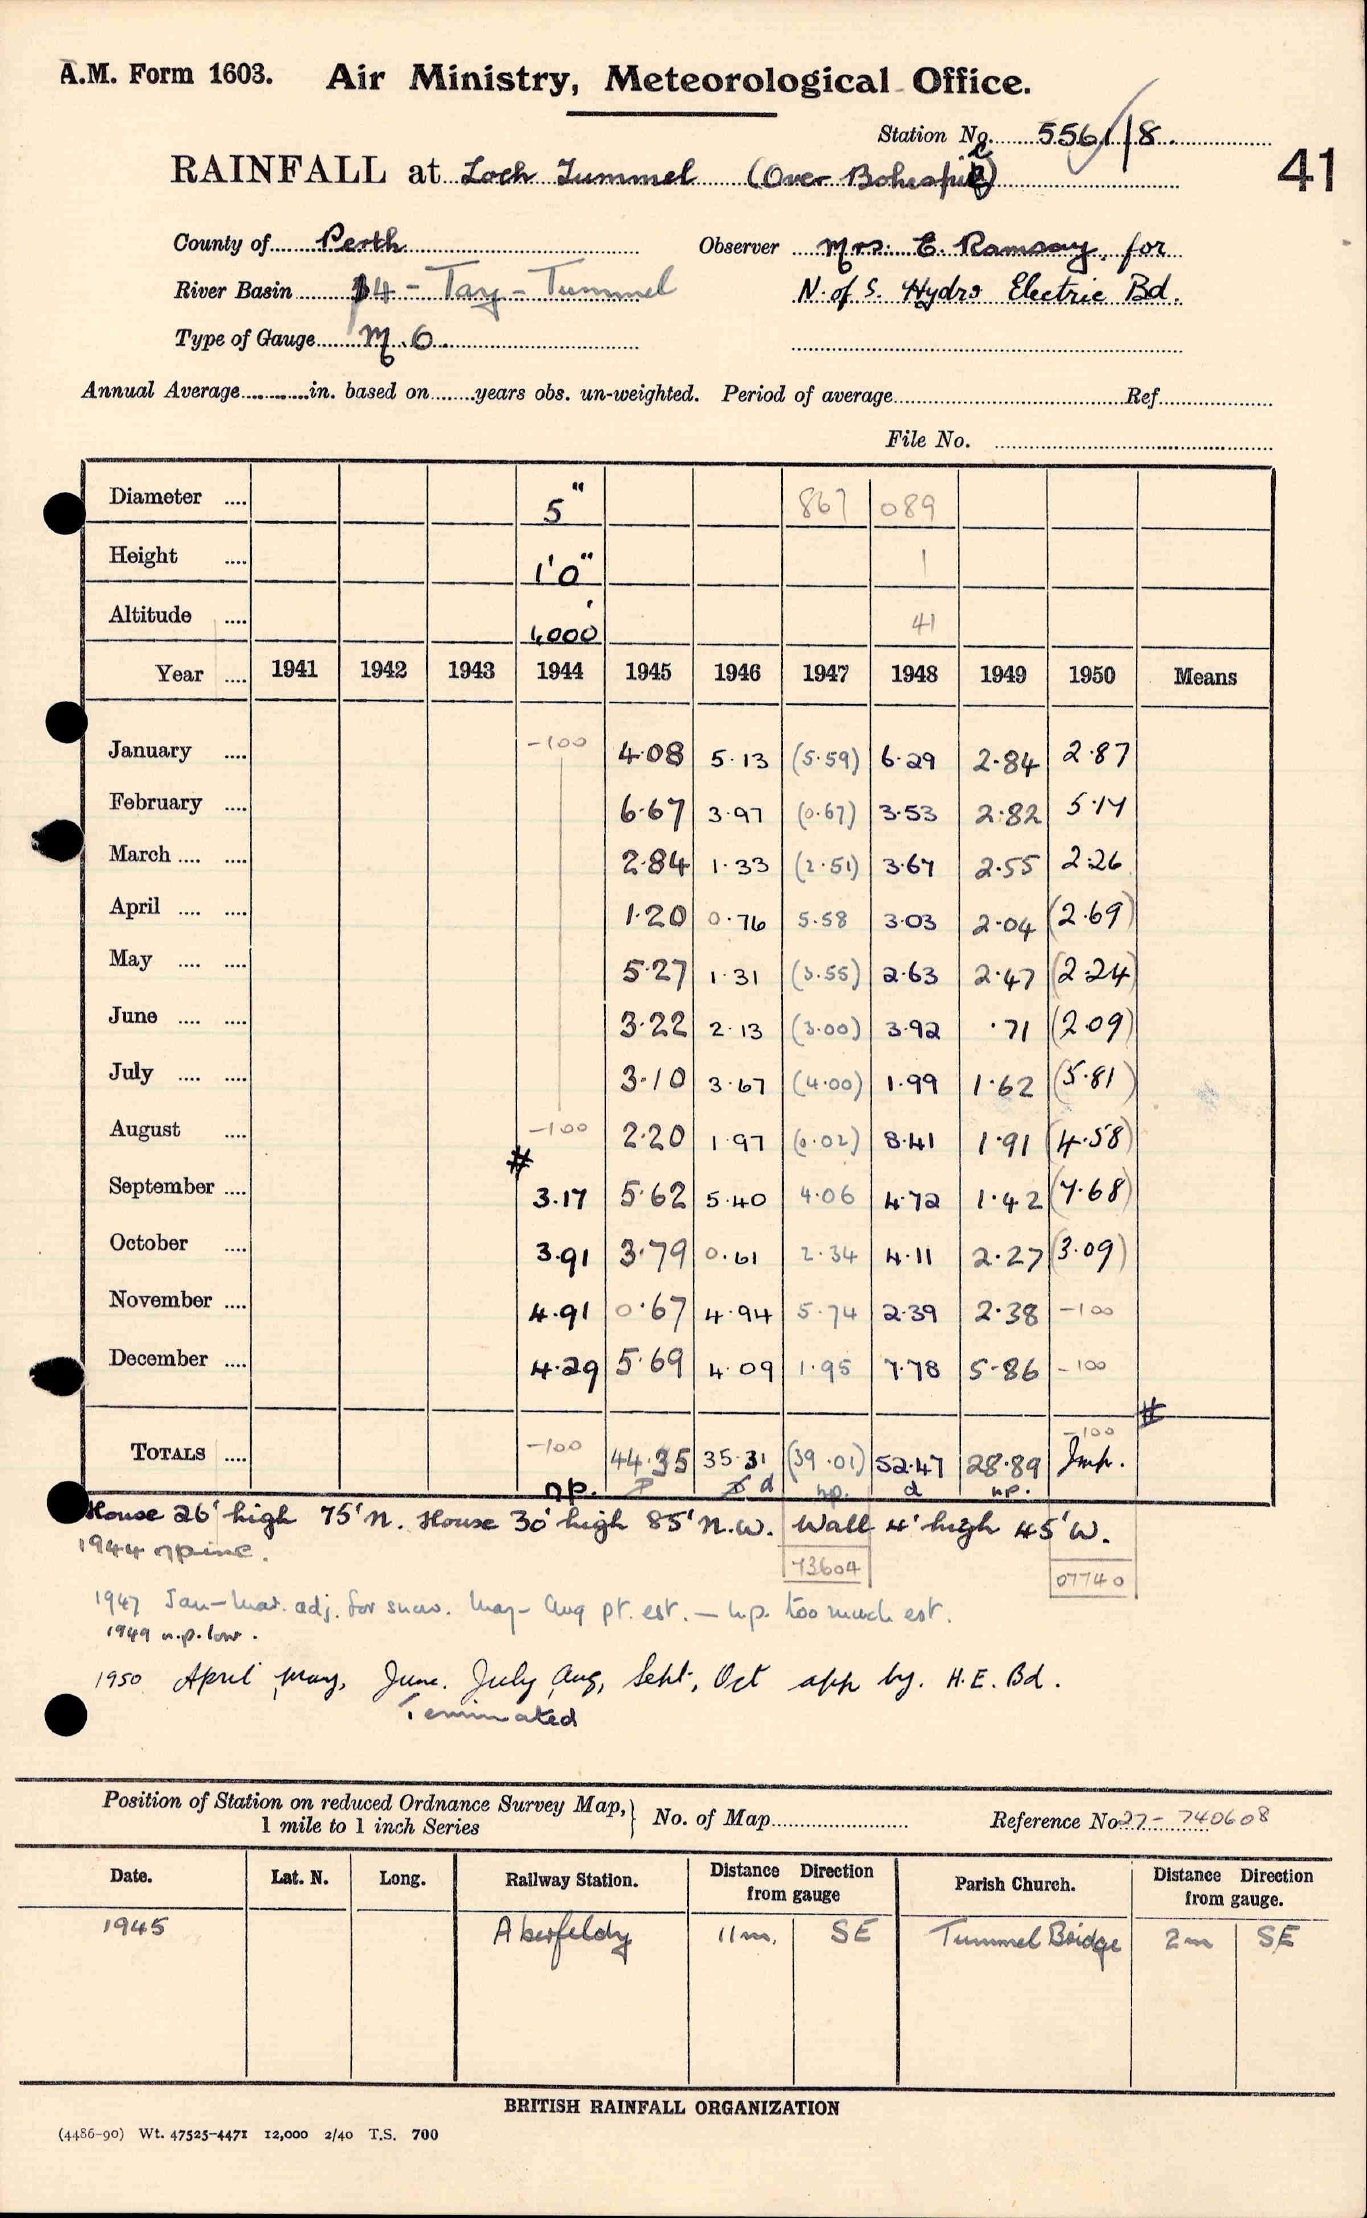 A.M. Form 1603. Air Ministry, Meteorological Office.
Station No. 5561/8.
41
RAINFALL at Loch Tummel (Over Bohespic)
County of Perth Observer Mrs. E. Ramsay, for
River Basin 14 - Tay - Tummel N. of S. Hydro Electric Bd.
Type of Gauge M.O.
Annual Average in. based on years obs. un-weighted. Period of average Ref
File No.
Diameter 5" 867 089
Height 1'0" 1
Altitude 1,000' 41
Year 1941 1942 1943 1944 1945 1946 1947 1948 1949 1950 Means
January -100 4.08 5.13 (5.59) 6.29 2.84 2.87
February 6.67 3.97 (0.67) 3.53 2.82 5.14
March 2.84 1.33 (2.51) 3.67 2.55 2.26
April 1.20 0.76 5.58 3.03 2.04 (2.69)
May 5.27 1.31 (3.55) 2.63 2.47 (2.24)
June 3.22 2.13 (3.00) 3.92 .71 (2.09)
July 3.10 3.67 (4.00) 1.99 1.62 (5.81)
August -100 2.20 1.97 (0.02) 8.41 1.91 (4.58)
#
September 3.17 5.62 5.40 4.06 4.72 1.42 (7.68)
October 3.91 3.79 0.61 2.34 4.11 2.27 (3.09)
November 4.91 0.67 4.94 5.74 2.39 2.38 -100
December 4.29 5.69 4.09 1.95 7.78 5.86 -100
#
-100
TOTALS -100 44.35 35.31 (39.01) 52.47 28.89 Imp.
n.p. d n.p. d n.p.
House 26' high 75' N. House 30' high 85' N.W. Wall 4' high 45' W.
1944 n.p. inc.
73604 07740
1947 Jan-Mar. adj. for snow. May-Aug pt. est. - n.p. too much est.
1949 n.p. low.
1950 April, May, June, July, Aug, Sept, Oct app by. H.E. Bd.
Terminated
Position of Station on reduced Ordnance Survey Map,} No. of Map Reference No 27- 740608
1 mile to 1 inch Series
Date. Lat. N. Long. Railway Station. Distance Direction from gauge Parish Church. Distance Direction from gauge.
1945 Aberfeldy 11 m. SE Tummel Bridge 2m SE
BRITISH RAINFALL ORGANIZATION
(4486-90) Wt. 47525-4471 12,000 2/40 T.S. 700